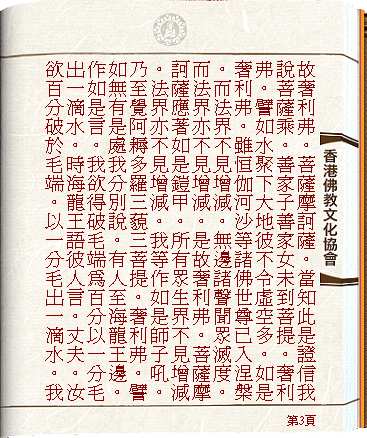 故奢利弗。菩薩摩訶薩。當知此是證信我
說菩薩乘。善家子善家女未到菩提。奢利
弗。譬如水聚下大地彼不令虛空多。如是
奢利弗。雖恒伽河沙等諸佛世尊已入涅槃
。而法界不見增減。無邊諸聲聞眾滅度。
而法界亦不見增減。是故奢利弗。菩薩摩
訶薩應著如是鎧甲。所有眾生界不見增減
。法界亦不見增減。我等作如是師子吼。
乃至覺阿耨多羅三藐三菩提。奢利弗。譬
如無有是處我分別說。有人至海龍王邊。
作如是言。我欲得破毛端為百分以一分毛
出一滴水。時海龍王語彼人言。丈夫。汝
欲百分破於毛端。以一分毛出一滴水。我
香港佛教文化協會
第3頁